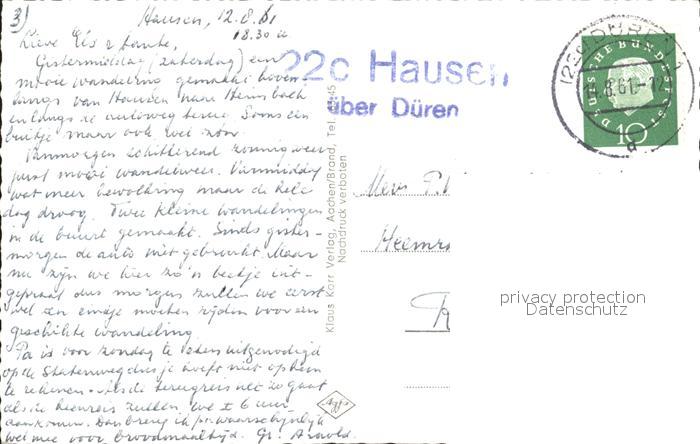 3)
Hausen, 12.8.61
18.30 u
Lieve Els & tante,
Gistermiddag (zaterdag) een
mooie wandeling gemaakt boven
langs van Hausen naar Heimbach
en langs de autoweg terug. Soms een
buitje maar ook wel zon.
Vanmorgen schitterend zonnig weer
juist mooi wandelweer. Vanmiddag
wat meer bewolking maar de hele
dag droog. Twee kleine wandelingen
in de buurt gemaakt. Sinds gister-
morgen de auto niet gebruikt. Maar
nu zijn we hier zo'n beetje uit-
gepraat dus morgen zullen we eerst
wel een eindje moeten rijden voor een
geschikte wandeling.
Pa is voor zondag te eten uitgenodigd
op de Statenweg dus je hoeft niet op hem
te rekenen. Als de terugreis net zo gaat
als de heenreis zullen we ± 6 uur
aankomen. Dan breng ik pa waarschijnlijk
wel mee voor broodmaaltijd. Gr. Arnold.
22c Hausen
über Düren
Klaus Korr Verlag, Aachen/Brand, Tel.
Nachdruck verboten
Agfa
DEUTSCHE BUNDESPOST
10
DÜREN 1
14.8.61-12
a
Mevr P.
Heemr
privacy protection
Datenschutz